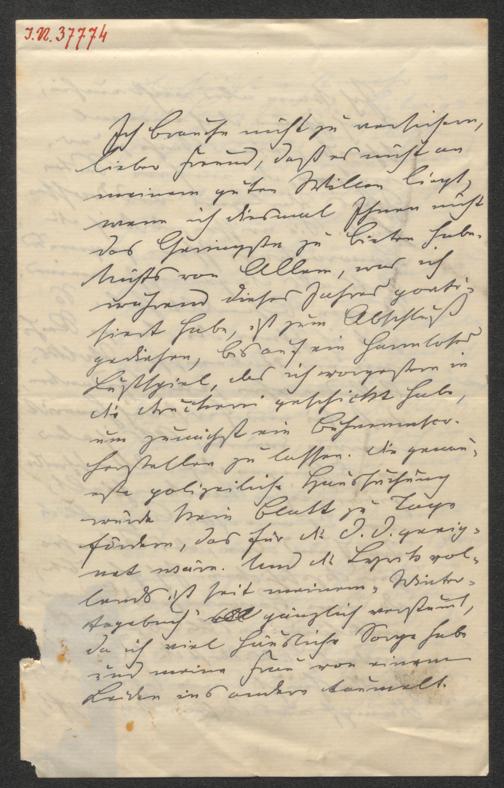 I. N. 37774
Ich brauche nicht zu versichern,
lieber Freund, daß es nicht an
meinem guten Willen liegt,
wenn ich diesmal Ihnen nicht
das Geringste zu bieten habe.
Nichts von Allem, was ich
während dieses Jahres poeti-
siert habe, ist zum Abschluß
gediehen, bis auf ein harmloses
Lustspiel, das ich vorgestern in
die Druckerei geschickt habe,
um zunächst ein Bühnenmscr.
herstellen zu lassen. Die genau-
este polizeiliche Haussuchung
würde kein Blatt zu Tage
fördern, das für die D. D. geeig-
net wäre. Und die Lyrik vol-
lends ist seit meinem „Winter-
tagebuch" gänzlich verstäubt,
da ich viel häusliche Sorge habe
und meine Frau von einem
Leiden ins andere taumelt.